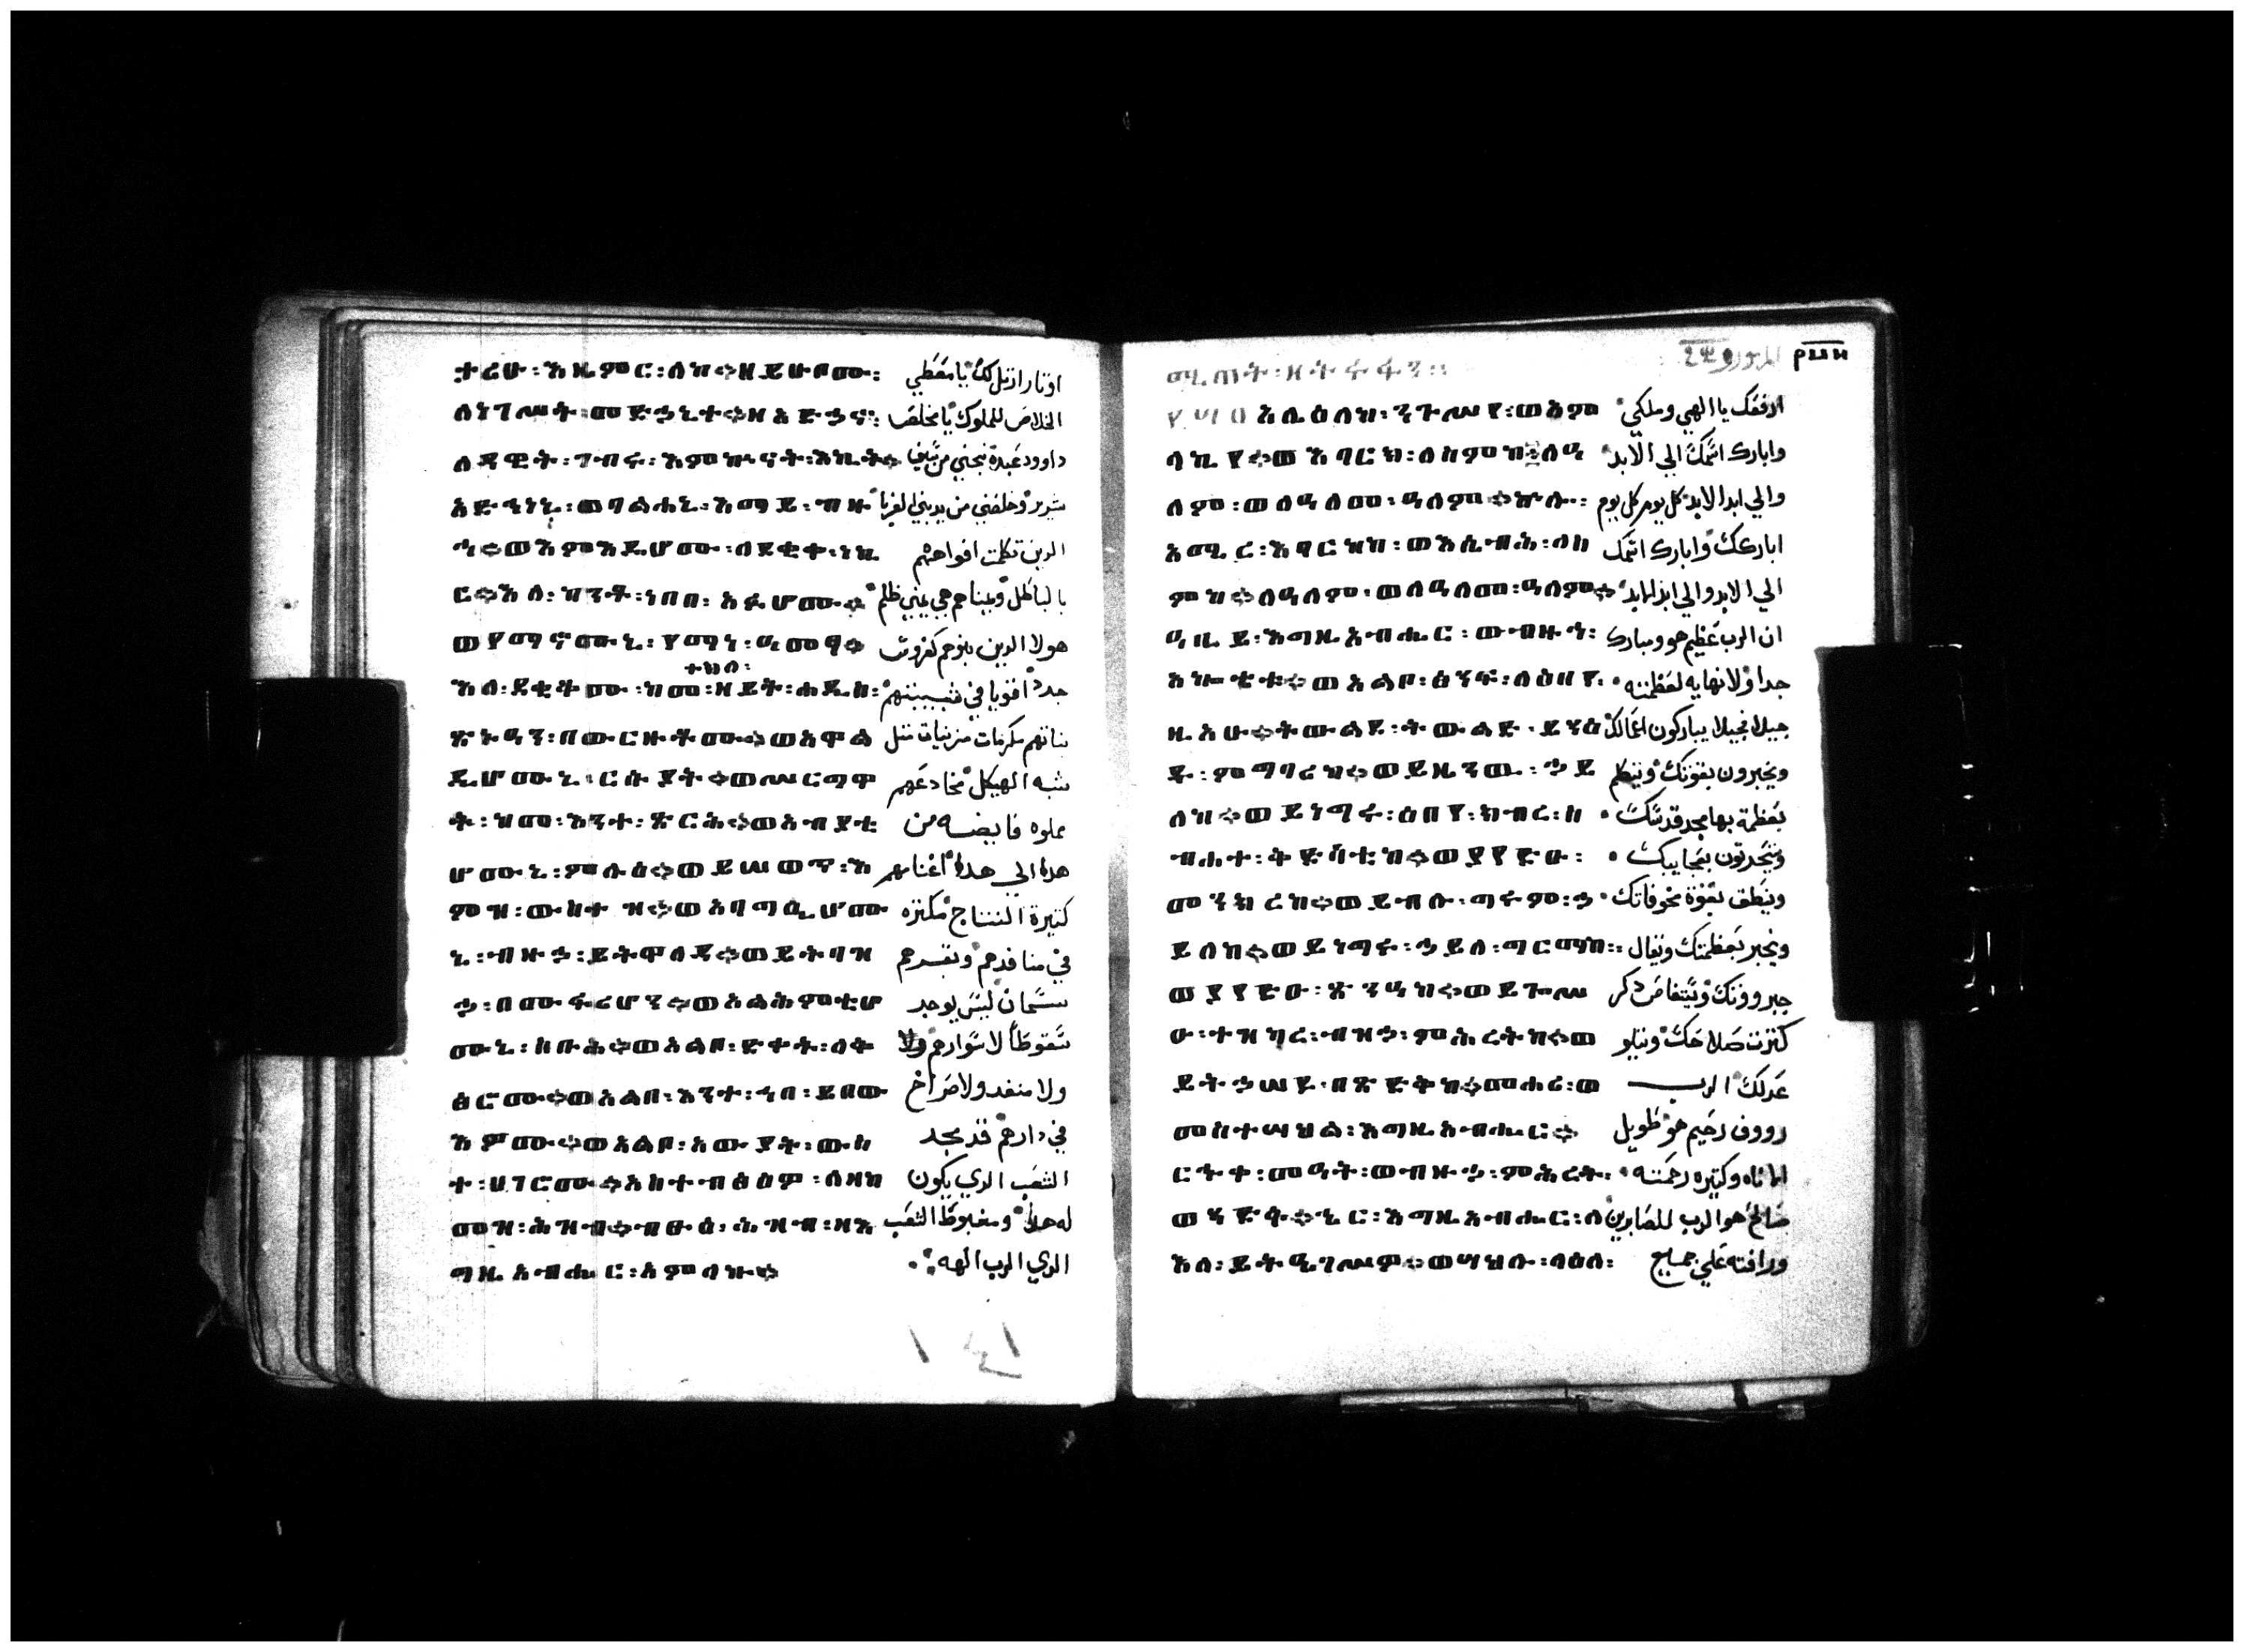 ተሩሁ፡እዜምር፡ለከ።ዘይሁቦሙ፡ اوتار ارتل لك يا معطي
ለነገሥት፡መድኃኒተ።ዘአድኃኖ፡ الخلاص للملوك يا مخلص
ለዳዊት፡ገብሩ፡እምኵናት፡እኪት። داوود عبده نجني من سيف
አድኅነኒ፡ወባልሐኒ፡እማይ፡ብዙ شرير وخلصني من يد بني الغربا
ኅ።ወእምእዴሆሙ፡ለደቂቀ፡ነኪ الدين تكلمت افواههم
ር።እለ፡ከንቶ፡ነበበ፡አፉሆሙ። بالباطل ويمناهم هي يمين ظلم
ወየማኖሙኒ፡የማነ፡ዓመፃ። هولا الدين بنوهم كغروت
ተክለ፡
እለ፡ደቂቆሙ፡ከመ፡ዘይት፡ሐዲስ፡ جدد اقويا في شبيبتهم
ጽኑዓን፡በውርዙቶሙ።ወአዋል بناتهم مكرمات مزينات متل
ዲሆሙኒ፡ርሱያት።ወሥርግዋ شبه الهيكل مخادعهم
ት፡ከመ፡እንተ፡ጽርሕ።ወአብያቲ مملوه فايضه من
ሆሙኒ፡ምሉዕ።ወይሠወጥ፡እ هدا الي هدا اغنامهم
ምዝ፡ውስተ ዝ።ወአባግዒሆሙ كتيرة النتاج مكتره
ኒ፡ብዙኃ፡ይትዋለዳ።ወይትባዝ في منافدهم وبقرهم
ኃ፡በሙፋሪሆን።ወአልሕምቲሆ سمان ليس يوجد
ሙኒ፡ስቡሕ።ወአልቦ፡ድቀት፡ለቅ سقوطا لاسوارهم ولا
ፅሮሙ።ወአልቦ፡እንተ፡ኀበ፡ይበው ولا منفد ولا صراخ
እዎሙ።ወአልቦ፡አውያት፡ውስ في دارهم قد مجد
ተ፡ሀገርሙ።አስተብፅዕዎ፡ለዘከ الشعب الدي يكون
መዝ፡ሕዝብ።ብፁዕ፡ሕዝብ፡ዘእ له هدا ومغبوطا الشعب
ግዚአብሔር፡አምላኩ። الدي الرب الهه
١٤١
المزمور
አሌዕለከ፡ንጉሥየ፡ወአም ارفعك يا الهي وملكي
ላኪየ።ወእባርክ፡ለስምከ።ለዓ وابارك اسمك الي الابد
ለም፡ወለዓለመ፡ዓለም።ኵሎ፡ والي ابد الابد كل يوم كل يوم
አሚረ፡እባርከከ፡ወእሴብሕ፡ለስ اباركك وابارك اسمك
ምከ።ለዓለም፡ወለዓለመ፡ዓለም። الي الابد والي ابد الابد
ዓቢይ፡እግዚአብሔር፡ወብዙኅ፡ ان الرب عظيم هو ومبارك
አኰቴቱ።ወአልቦ፡ጽንፍ፡ለዕበየ፡ جدا ولا نهايه لعظمته
ዚአሁ።ትውልደ፡ትውልድ፡ይንዕ جيلا فجيلا يباركون اعمالك
ዱ፡ምግባሪከ።ወይዜንዉ፡ኃይ ويخبرون بقوتك وينطم
ለከ።ወይነግሩ፡ዕበየ፡ክብረ፡ስ بعظمة بها مجد قدسك
ብሐተ፡ቅድሳቲከ።ወያየድዑ፡ ويتحدتون بعجايبك
መንክረከ።ወይብሉ፡ግሩም፡ኃ وينطق بقوة مخوفاتك
ይለከ።ወይነግሩ፡ኃይለ፡ግርማከ፡ ويخبر بعظمتك ويقال
ወያየድዑ፡ጽንዓከ።ወይጐሥ جبروونك ويتفاض دكر
ዑ፡ተዝካረ፡ብዝኃ፡ምሕረትከ።ወ كترت صلاحك ويتلو
ይትኃሠይ፡በጽድቅከ።መሐሪ፡ወ عدلك الرب
መስተሣህል፡እግዚአብሔር። رووف رحيم هو طويل
ርኁቀ፡መዓት፡ወብዙኃ፡ምሕረት፡ الاناه وكتيره رحمته
ወጻድቅ።ኄር፡እግዚአብሔር፡ለ صالح هو الرب للصابرين
እለ፡ይትዔገሥዎ።ወሣህሉ፡ላዕለ፡ ورافته علي جميع